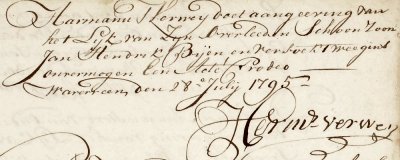 Harmanus Verweij doet aangeeving van
het Lijk van Zijn Overleeden Schoon Zoon
Jan Hendrik Bijen en versoekt weegens
onvermogen Een Acte Prodeo
den 28e July 1795
Herms verwey